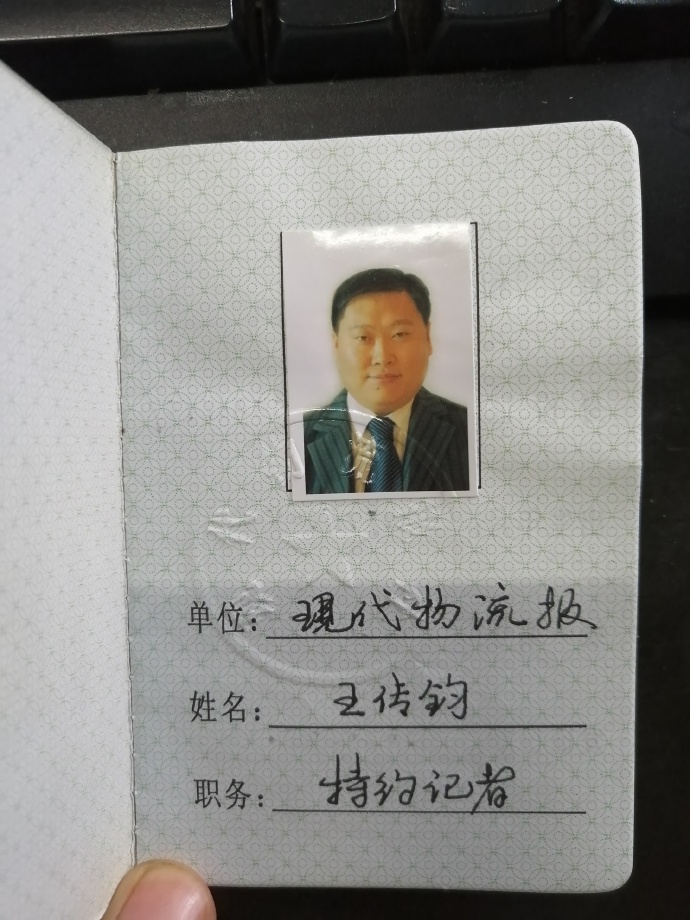 单位：现代物流报
姓名：王传钧
职务：特约记者